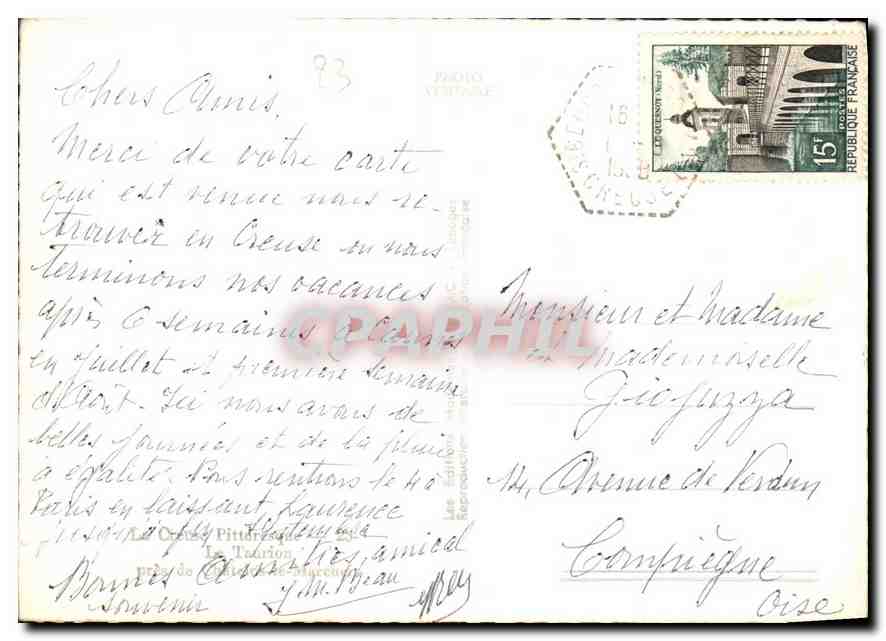 23
Chers Amis,
Merci de votre carte
qui est venue nous re-
trouver en Creuse ou nous
terminons nos vacances
après 6 semaines à
en Juillet et première semaine
d'Août. Ici nous avons de
belles journées et de la pluie
à égalité. Nous rentrons le 40
Paris en laissant Laurence
jusqu'à fin Septembre
Bonnes Amitiés, amical
souvenir J.M. Beau
La Creuse Pittoresque
Le Taurion
près de Châtelus-le-Marcheix
PHOTO
VÉRITABLE
Les Éditions
Reproduction
CPAPHIL
LE QUESNOY (Nord)
15F
POSTES
RÉPUBLIQUE FRANÇAISE
CREUSE
Monsieur et Madame
et Mademoiselle
14, Avenue de Verdun
Compiègne
Oise